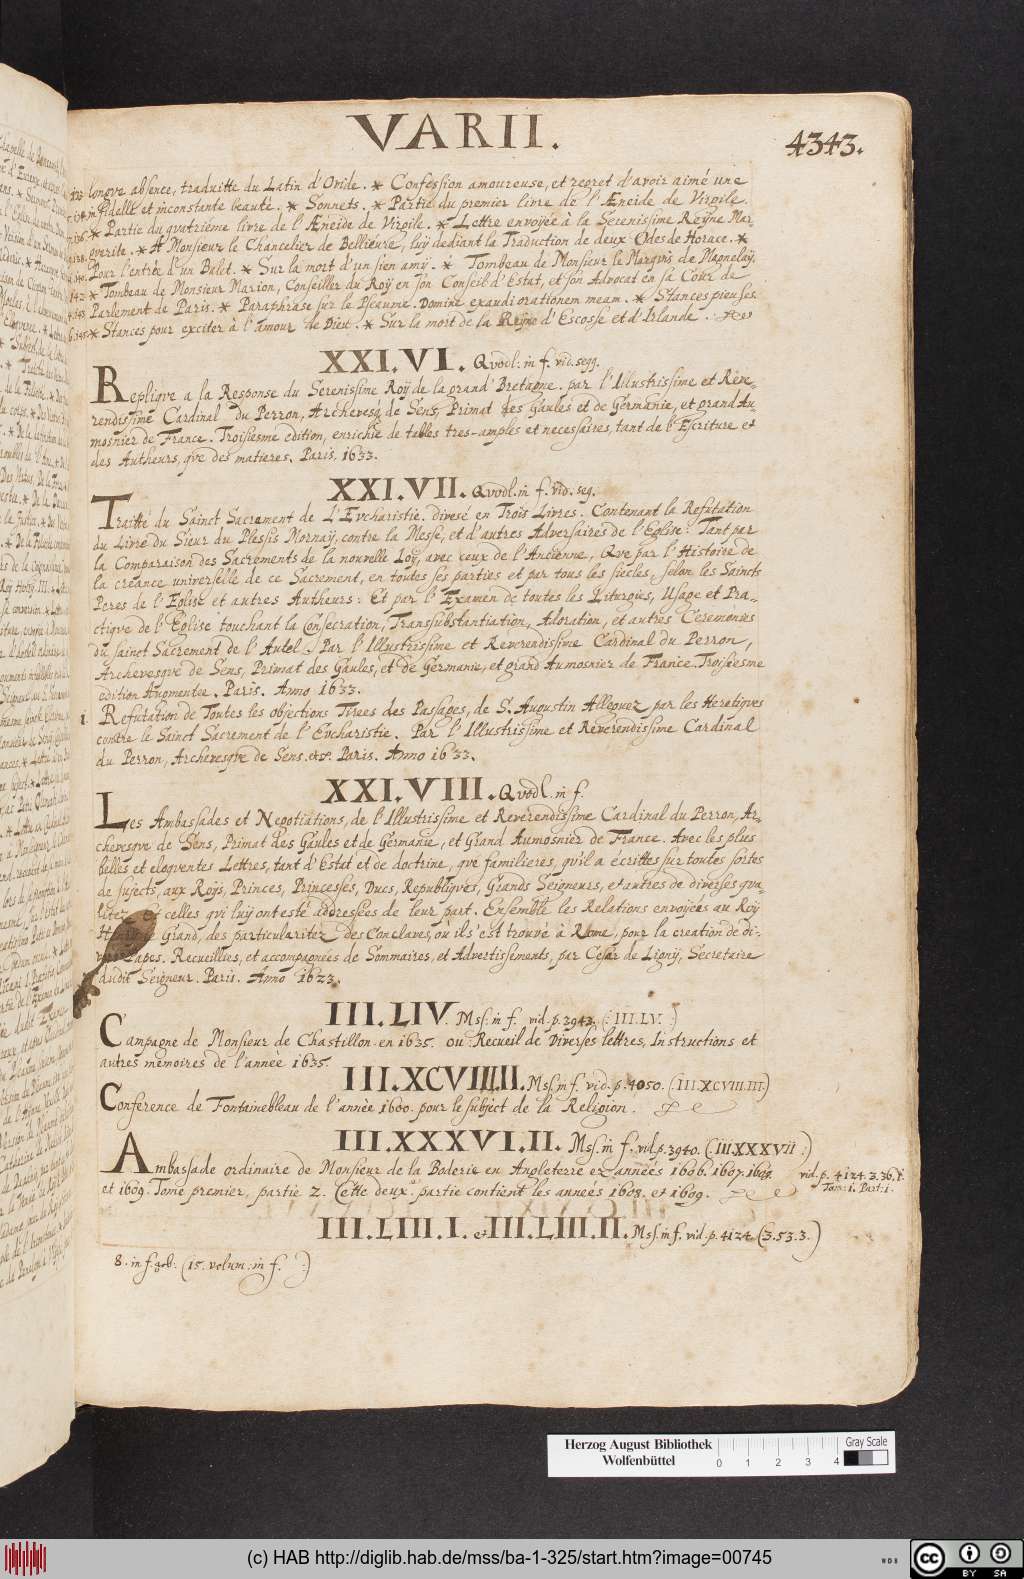 VARII.
4343.
longve absence, traduitte du Latin d'Ovide. * Confession amoureuse, et regret d'avoir aimé une
infidelle et inconstante beauté. * Sonnets. * Partie du premier livre de l'Æneide de Virgile.
* Partie du qvatrieme livre de l'Æneide de Virgile. * Lettre envoyée à la Serenissime Reÿne Mar-
gverite. * A Monsieur le Chancelier de Bellievre, luÿ dediant la Traduction de deux Odes de Horace. *
Pour l'entrée d'un Balet. * Sur la mort d'un sien amÿ. * Tombeau de Monsieur le Marqvis de Magnelaÿ.
* Tombeau de Monsieur Marion, Conseiller du Roÿ en son Conseil d'Estat, et son Advocat en sa Cour de
Parlement de Paris. * Paraphrase sur le Pseaume. Domine exaudi orationem meam. * Stances pieuses.
* Stances pour exciter à l'amour de Dieu. * Sur la mort de la Reÿne d'Escosse et d'Irlande.
XXI.VI. Qvodl: in f. vid. seqq.
Repliqve a la Response du Serenissime Roÿ de la grand' Bretagne. par l'Illustrissime et Reve-
rendissime Cardinal du Perron, Archevesq. de Sens, Primat des Gaules et de Germanie, et grand Au-
mosnier de France. Troisiesme edition, enrichie de tables tres-amples et necessaires, tant de l'Escriture et
des Autheurs, qve des matieres. Paris. 1633.
XXI.VII. Qvodl. in f. vid. seq.
Traitté du Sainct Sacrament de L'Evcharistie. divesé en Trois Livres. Contenant la Refutation
du Livre du Sieur du Plessis Mornaÿ, contre la Messe, et d'autres Adversaires de l'Eglise: Tant par
la Comparaison des Sacrements de la nouvelle Loÿ, avec ceux de l'Ancienne, Qve par l'Histoire de
la creance universelle de ce Sacrement, en toutes ses parties et par tous les siecles, selon les Saincts
Peres de l'Eglise et autres Autheurs: Et par l'Examen de toutes les Liturgies, Usage et Pra-
ctiqve de l'Eglise touchant la Consecration, Transsubstantiation, Adoration, et autres Ceremonies
du sainct Sacrement de l'Autel. Par l'Illustrissime et Reverendissime Cardinal du Perron,
Archevesqve de Sens, Primat des Gaules, et de Germanie, et grand Aumosnier de France. Troisiesme
edition Augmentee. Paris. Anno 1633.
1. Refutation de Toutes les objections Tirees des Passages, de S. Augustin Alleguez par les Heretiqves
contre le Sainct Sacrement de l'Evcharistie. Par l'Illustrissime et Reverendissime Cardinal
du Perron, Archevesqve de Sens. etc. Paris. Anno 1633.
XXI.VIII. Qvodl. in f.
Les Ambassades et Negotiations, de l'Illustrissime et Reverendissime Cardinal du Perron, Ar-
chevesqve de Sens, Primat des Gaules et de Germanie, et Grand Aumosnier de France. Avec les plus
belles et eloqventes Lettres, tant d'Estat et de doctrine, qve familieres, qv'il a écrittes sur toutes sortes
de sujects, aux Roÿs, Princes, Princesses, Ducs, Republiqves, Grands Seigneurs, et autres de diverses qva-
litez. Et celles qvi luÿ ont esté addressées de leur part. Ensemble les Relations envoyées au Roÿ
Grand, des particularitez des Conclaves, où il s'est trouvé à Rome, pour la creation de di-
Papes. Recueillies, et accompagnées de Sommaires, et Advertissements, par Cesar de Lignÿ, Secretaire
dudit Seigneur. Paris. Anno 1623.
III.LIV. Mss. in f. vid. p. 3943. (:III.LV:)
Campagne de Monsieur de Chastillon en 1635. ou Recueil de Diverses lettres, Instructions et
autres memoires de l'année 1635.
III.XCVIIII.II. Mss. in f. vid. p. 4050. (III.XCVIII.III.)
Conference de Fontainebleau de l'année 1600. pour le subject de la Religion.
III.XXXVI.II. Mss. in f. vid. p. 3940. (:III.XXXVII:)
Ambassade ordinaire de Monsieur de la Boderie en Angleterre ez années 1606. 1607. 1608.
et 1609. Tome premier, partie 2. Cette deux.e partie contient les années 1608. et 1609.
vid. p. 4124. 3.36.1.
Tom: 1. Part: 1.
III.LIII.I. et III.LIII.II. Mss. in f. vid. p. 4124. (3.53.3.)
8. in f. (15. volum. in f. :)
Herzog August Bibliothek
Wolfenbüttel
Gray Scale
0 1 2 3 4
(c) HAB http://diglib.hab.de/mss/ba-1-325/start.htm?image=00745
WDB
CC BY SA